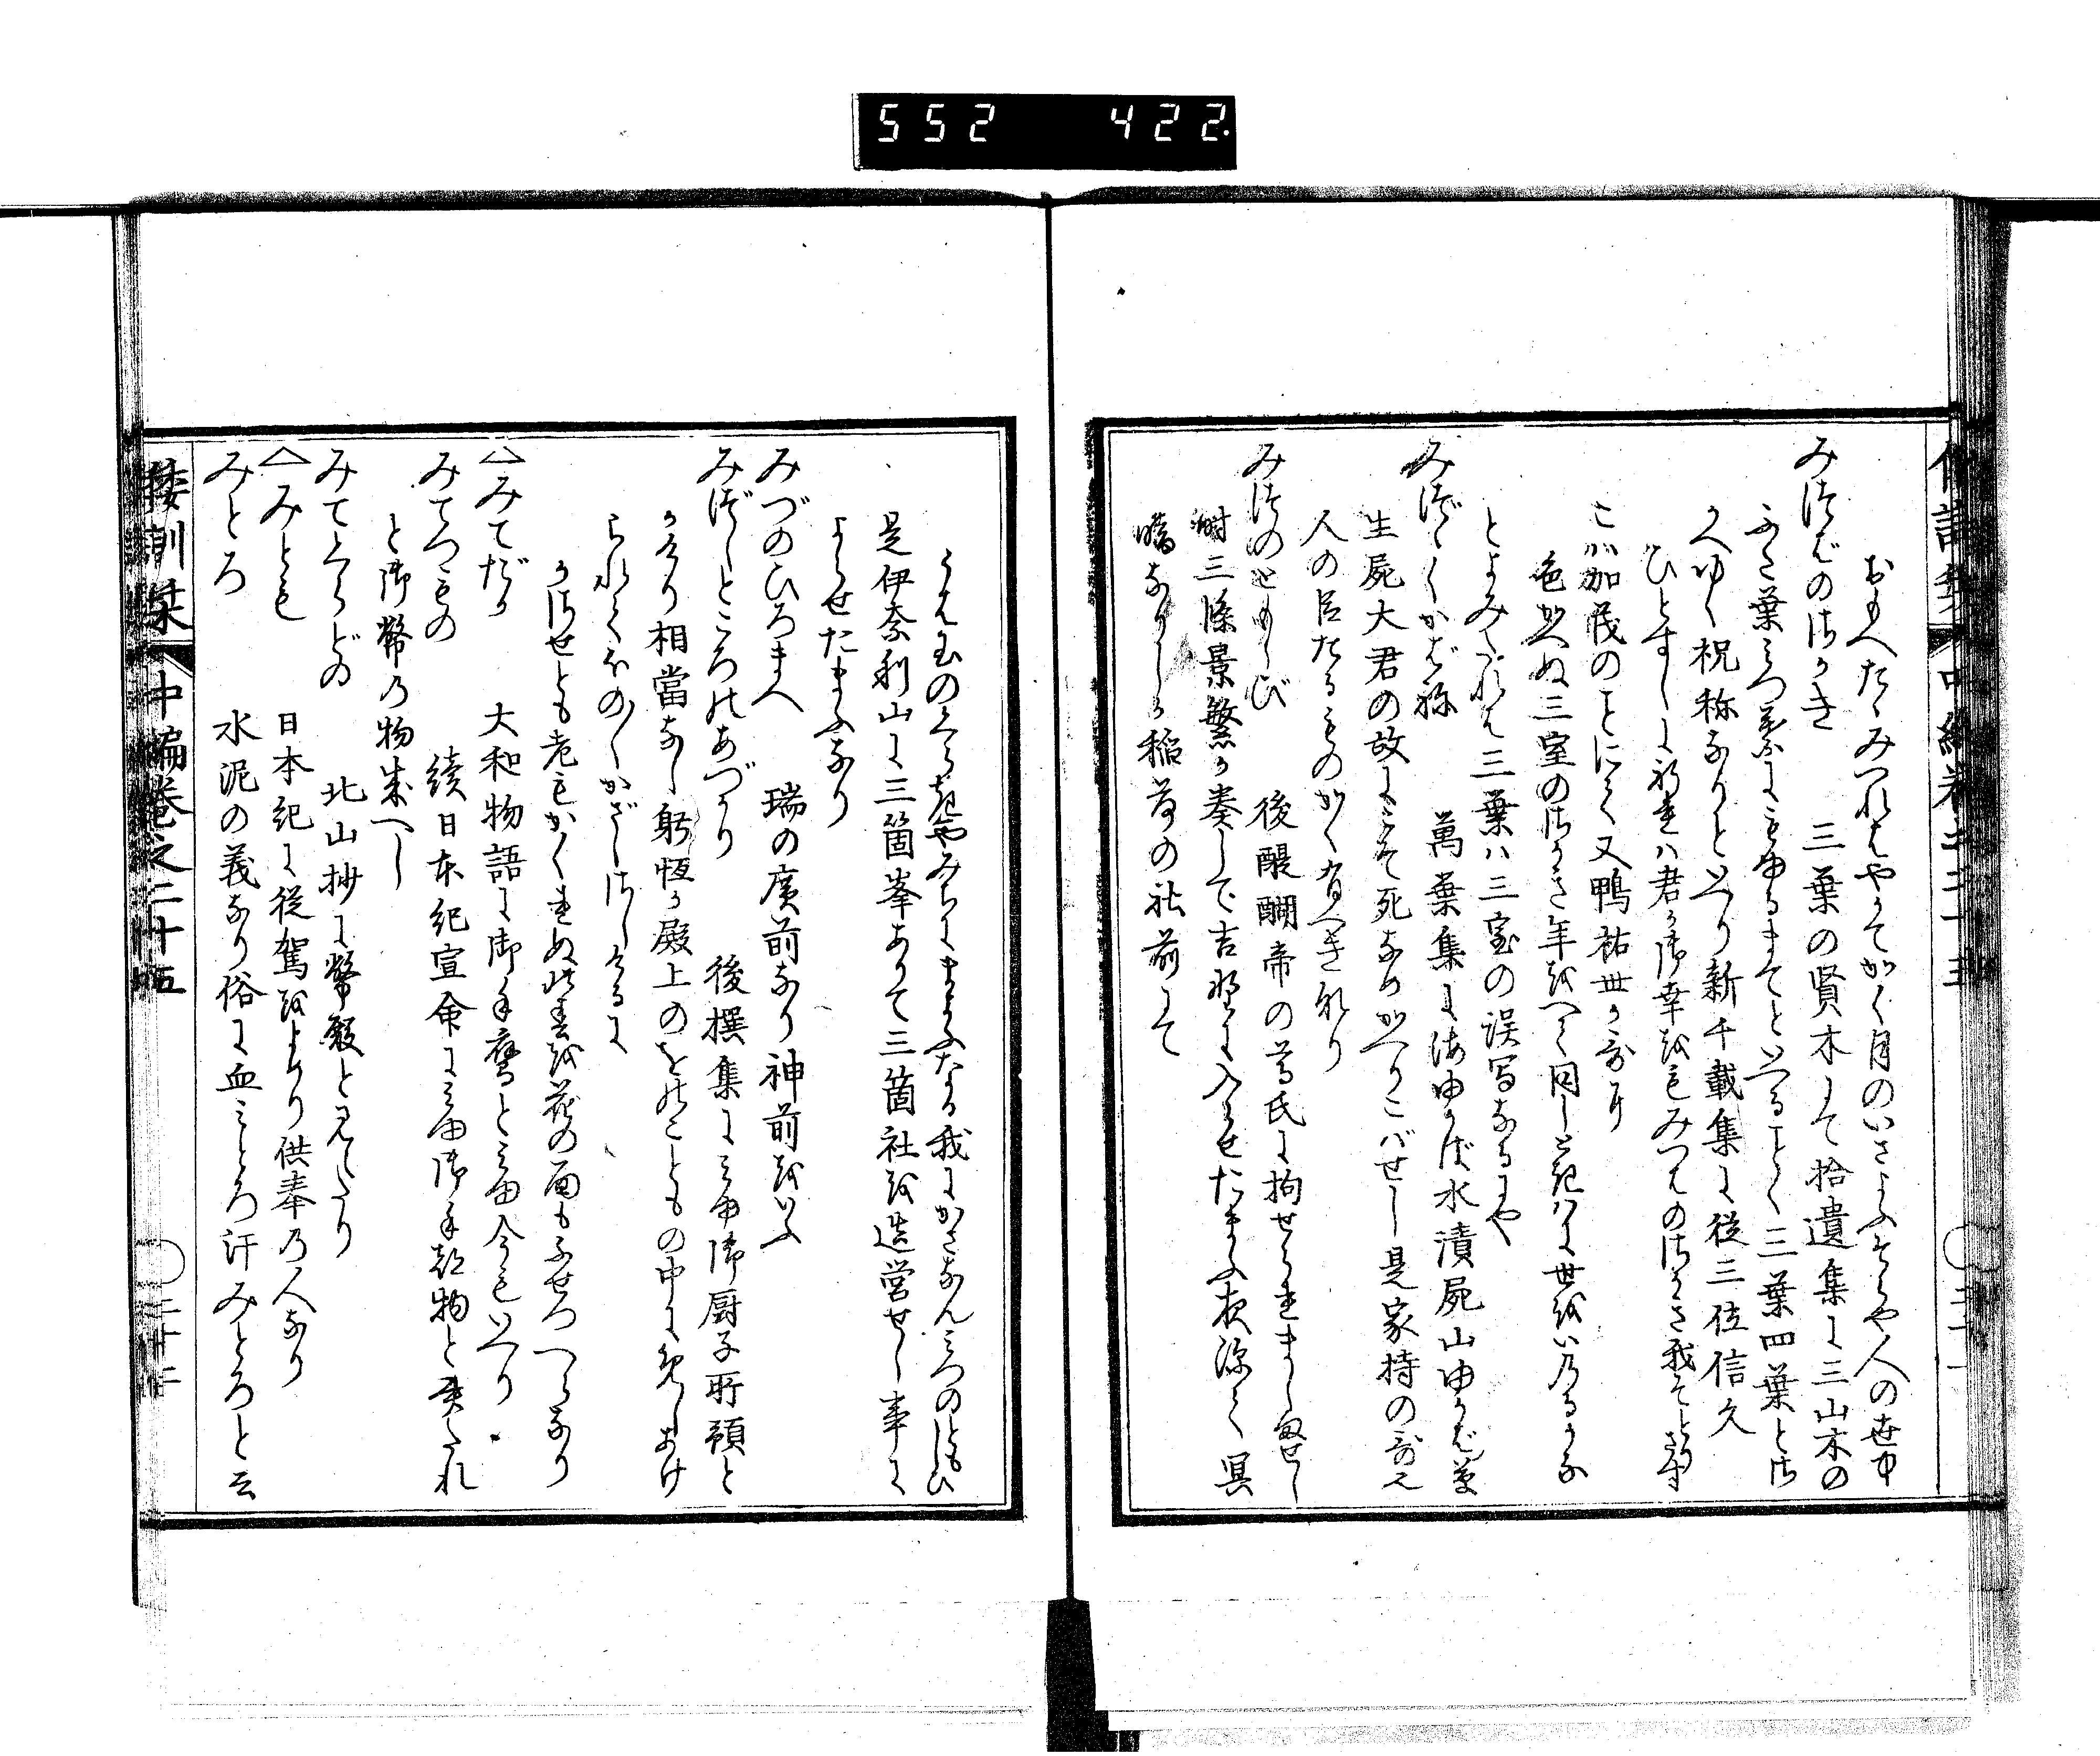 552 422
おもへたゝみつれはやかてかく月のいさよふそらや人の世中
みつばのさかき 三葉の賢木にて拾遺集に三山木の
ふた葉みつ葉にもゆるまてといへることく三葉四葉とさ
かへゆく祝称なりといへり新千載集に従三位信久
こハ加茂のことにて又鴨祐世か哥に
色かへぬ三室のさかき年をへて同しときハに世をいのるかな
とよみたれは三葉ハ三室の誤写なるにや
みづくかばね 萬葉集に海ゆかば水漬屍山ゆかば草
生屍大君の故にこそ死なめかへりこバせし是家持の哥也
人の臣たるものかく有へき也
みつのともしび 後醍醐帝の尊氏に拘せられまし〳〵せし
時三條景繁か奏して吉野に入らせたまふ夜深く冥
暗なりしか稲荷の社前にて
うは玉のくらきやみちにまよふなる我にかさなんみつのともしひ
是伊奈利山に三箇峯ありて三箇社を造営せし事に
よらせたまふなり
みづのひろまへ 瑞の廣前なり神前をいふ
みづしところのあづかり 後撰集にみゆ御厨子所預と
かけり相當なし躬恒か殿上のをのこともの中にめしあけ
られてほの〳〵かざしさしけるに
かさせとも老もかくれぬ此春そ花の面もふせつへらなり
△みてだか 大和物語に御手鷹とみゆ今もいへり
みてつもの 續日本紀宣命にみゆ御手都物と書たれ
と御幣乃物成へし
みてくらどの 北山抄に幣殿と見えたり
△みとも 日本紀に従駕をよめり供奉乃人なり
みとろ 水泥の義なり俗に血みとろ汗みとろと云
倭訓栞 中編巻之二十五 ○二十二